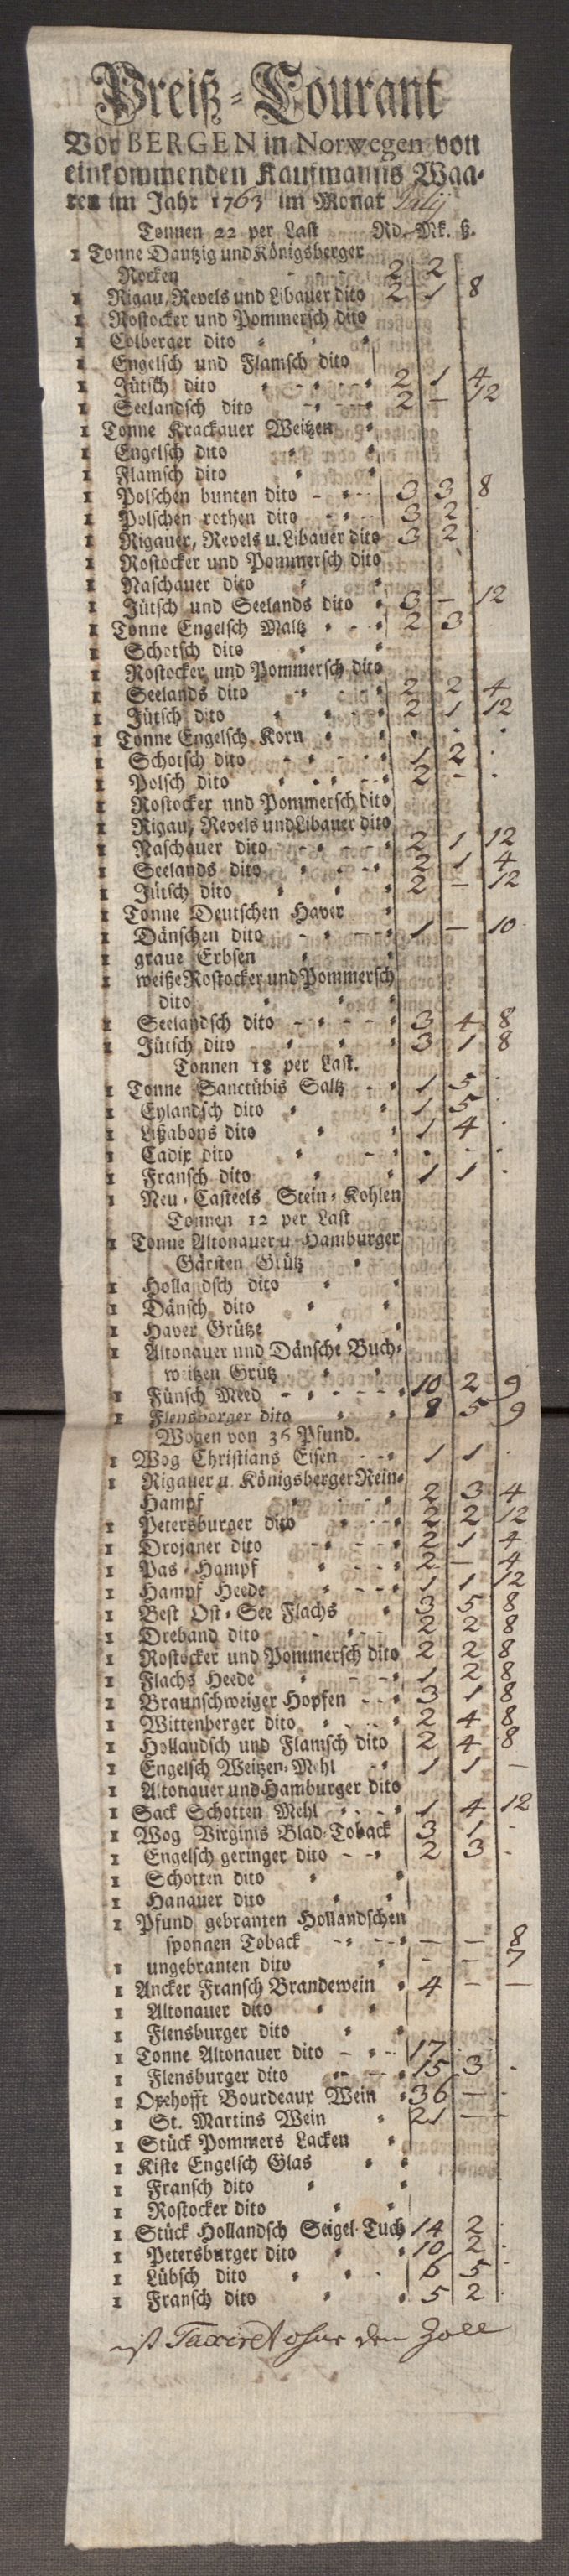 Preiß-Courant
Vor BERGEN in Norwegen von
einkommenden Kaufmanns Waa-
ren im Jahr 1763 im Monat Julij
Tonnen 22 per Last Rd. Mk. ß.
1 Tonne Dantzig und Königsberger
Rocken 2 2
1 Rigau, Revels und Libauer dito 2 1 8
1 Rostocker und Pommersch dito
1 Colberger dito
1 Engelsch und Flamsch dito
1 Jütsch dito 2 1 4
1 Seelandsch dito 2 — 12
1 Tonne Krackauer Weitzen
1 Engelsch dito
1 Flamsch dito
1 Polschen bunten dito 3 3 8
1 Polschen rothen dito 3 2
1 Rigauer, Revels u. Libauer dito 3 2
1 Rostocker und Pommersch dito
1 Naschauer dito
1 Jütsch und Seelands dito 3 — 12
1 Tonne Engelsch Maltz 2 3
1 Schotsch dito
1 Rostocker und Pommersch dito
1 Seelands dito 2 2 4
1 Jütsch dito 2 1 12
1 Tonne Engelsch Korn . . .
1 Schotsch dito 1 2 .
1 Polsch dito 2 - .
1 Rostocker und Pommersch dito
1 Rigau, Revels und Libauer dito
1 Naschauer dito 2 1 12
1 Seelands dito 2 1 4
1 Jütsch dito 2 — 12
1 Tonne Deutschen Haver
1 Dänschen dito 1 — 10
1 graue Erbsen
1 weiße Rostocker und Pommersch
dito
1 Seelandsch dito 3 4 8
1 Jütsch dito 3 1 8
Tonnen 18 per Last.
1 Tonne Sanctübis Saltz 1 5 .
1 Eylandsch dito 1 5 .
1 Lißabons dito 1 4 .
1 Cadix dito . . .
1 Fransch dito 1 1 .
1 Neu-Casteels Stein-Kohlen
Tonnen 12 per Last
1 Tonne Altonauer u Hamburger
Gärsten Grütz
1 Hollandsch dito
1 Dänsch dito
1 Haver Grütze
1 Altonauer und Dänsche Buch-
weitzen Grütz
1 Fünsch Meed 10 2 9
1 Flensborger dito 8 5 9
Wogen von 36 Pfund.
1 Wog Christians Eisen 1 1 .
1 Rigauer u. Königsberger Rein-
Hampf 2 3 4
1 Petersburger dito 2 2 12
1 Drojaner dito 2 1 4
1 Pas-Hampf 2 — 4
1 Hampf Heede 1 1 12
1 Best Ost-See Flachs 3 5 8
1 Dreband dito 2 2 8
1 Rostocker und Pommersch dito 2 2 8
1 Flachs Heede 1 2 8
1 Braunschweiger Hopfen 3 1 8
1 Wittenberger dito 2 4 8
1 Hollandsch und Flamsch dito 2 4 8
1 Engelsch Weitzen-Mehl 1 1 —
1 Altonauer und Hamburger dito
1 Sack Schotten Mehl 1 4 12
1 Wog Virginis Blad-Toback 3 1 .
1 Engelsch geringer dito 2 3 .
1 Schotten dito
1 Hanauer dito
1 Pfund gebranten Hollandschen
sponnen Toback — — 8
1 ungebranten dito - — 7
1 Ancker Fransch Brandewein 4 - —
1 Altonauer dito
1 Flensburger dito
1 Tonne Altonauer dito 17 .
1 Flensburger dito 15 3 .
1 Oxehofft Bourdeaux Wein 36 — .
1 St. Martins Wein 21 — —
1 Stück Pommers Lacken
1 Kiste Engelsch Glas
1 Fransch dito
1 Rostocker dito
1 Stück Hollandsch Seigel-Tuch 14 2 .
1 Petersburger dito 10 2 .
1 Lübsch dito 6 5 .
1 Fransch dito 5 2 .
ist Taxiret ohne den Zoll